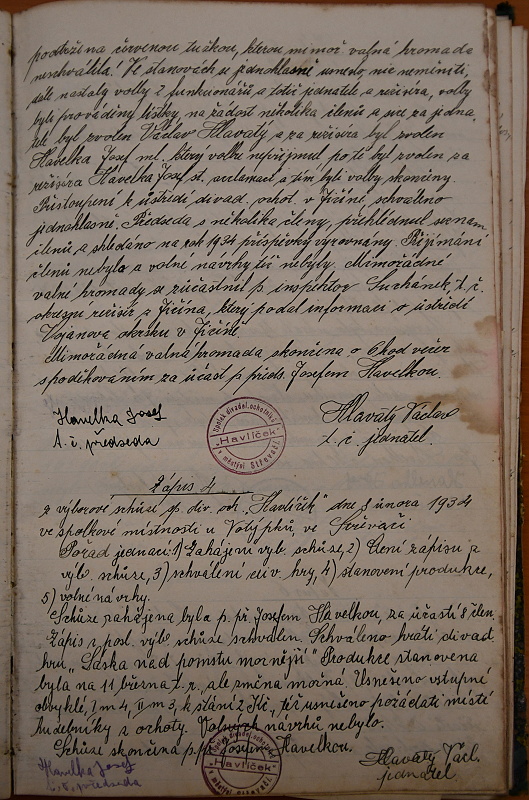 podtržena červenou tužkou, kterou mimoř. valná hromada
neschválila! Ve stanovách se jednohlasně usneseno, nic neměniti,
dále nastaly volby 2 funkcionářů a totiž jednatele a režiséra, volby
byly prováděny lístky, na žádost několika členů a sice za jedna-
tele byl zvolen Václav Hlavatý a za režiséra byl zvolen
Havelka Josef ml. který volbu nepřijmul poté byl zvolen za
režiséra Havelka Josef st. acclamací a tím byli volby skončeny.
Přistoupení k ústředí divad. ochot. v Jičíně, schváleno
jednohlasně. Předseda s několika členy, přehlédnul seznam
členů, a shledáno na rok 1934 příspěvky vyrovnány. Přijímání
členů nebylo a volné návrhy též nebyly. Mimořádné
valné hromady se zúčastnil p. inspektor Sucháněk, t. č.
okresní režisér z Jičína, který podal informaci o ústředí
Vojanova okrsku v Jičíně.
Mimořádná valná hromada skončena o 6 hod večer
s poděkováním za účast p. předs. Josefem Havelkou.
Havelka Josef
t. č. předseda
Spolek divadel. ochotníků
"Havlíček"
v městysi Střevači
Hlavatý Václav
t. č. jednatel.
Zápis 4.
z výborové schůze sp. div. och. "Havlíček" dne 8 února 1934
ve spolkové místnosti u Volýpků, ve Střevači
Pořad jednací 1) Zahájení výb. schůze, 2) Čtení zápisu z
výb. schůze, 3) schválení div. hry, 4) stanovení produkce,
5) volné návrhy.
Schůze zahájena byla p. př. Josefem Havelkou, za účasti 8 člen.
Zápis z posl. výb. schůze schválen. Schváleno hráti divad.
hru, "Láska nad pomstu mocnější" Produkce stanovena
byla na 11 března t. r., ale změna možná. Usneseno vstupné
obvyklé, I m 4, II m 3, k stání 2 Kč, též usneseno pořádati místí
hudebníky z ochoty. Volných návrhů nebylo.
Schůze skončena p. př. Josefem Havelkou.
Havelka Josef
t. č. předseda
"Havlíček"
Hlavatý Václ.
jednatel